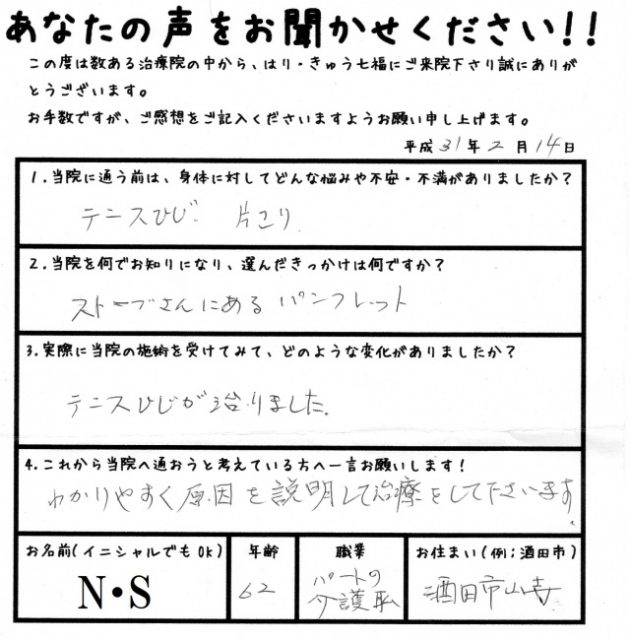 あなたの声をお聞かせください!!
この度は数ある治療院の中から、はり・きゅう七福にご来院下さり誠にありが
とうございます。
お手数ですが、ご感想をご記入くださいますようお願い申し上げます。
平成31年2月14日
1.当院に通う前は、身体に対してどんな悩みや不安・不満がありましたか?
テニスひじ. 片こり.
2.当院を何でお知りになり、選んだきっかけは何ですか?
ストーブさんにある パンフレット
3.実際に当院の施術を受けてみて、どのような変化がありましたか?
テニスひじが治りました.
4.これから当院へ通おうと考えている方へ一言お願いします!
わかりやすく原因を説明して治療をしてくださいます。
お名前(イニシャルでもOK) 年齢 職業 お住まい(例;酒田市)
N・S 62 パートの 酒田市山寺
介護職